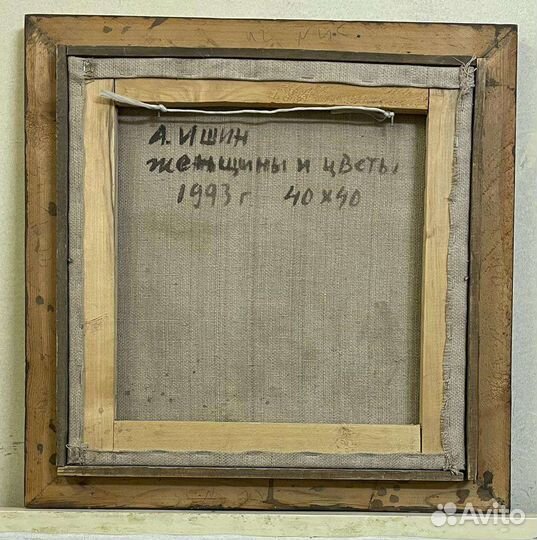 А. ИШИН
женщины и цветы
1993 г 40 х 40
Avito